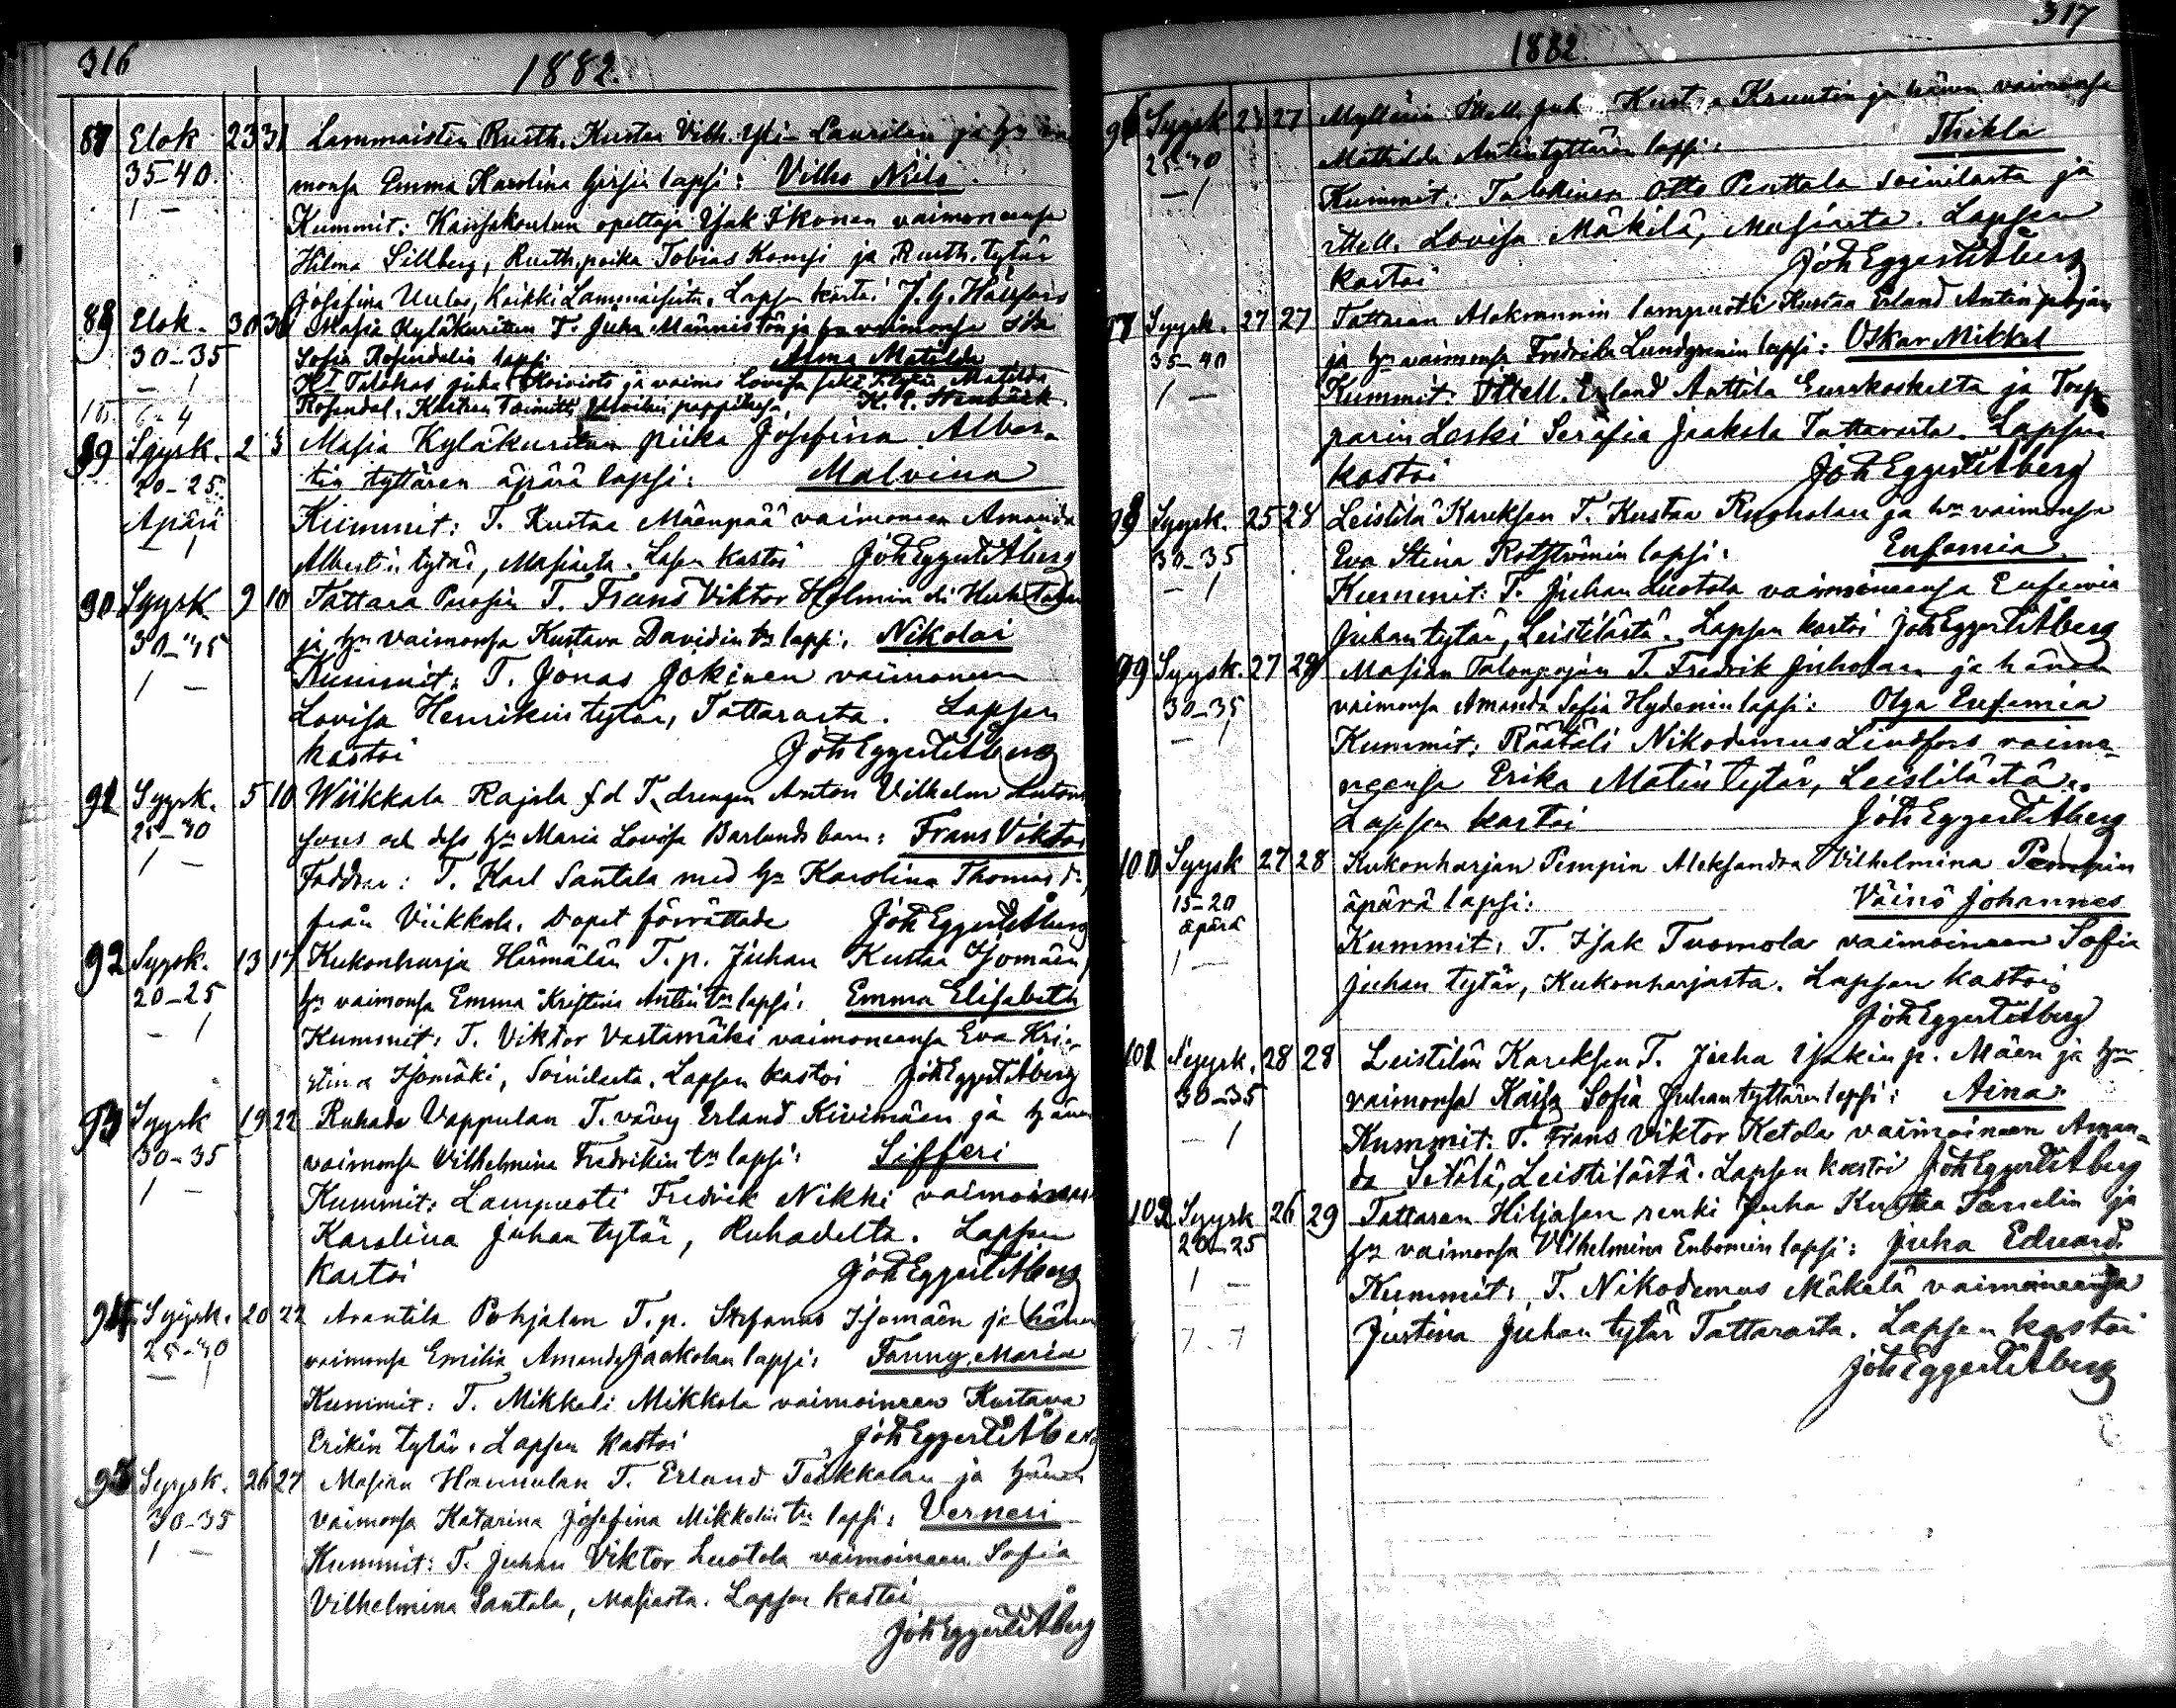 316
1882.
87 Elok 23 31 Lammaisten Rusth. Kustaa Vilh. Yli-Laurilan ja hn vai
35-40. monsa Emma Karolina lapsi: Vilho Niilo
1 - Kummit: Kansakoulun opettaja Isak Ikonen vaimoneensa
Hilma Sillberg, Rusth. poika Tobias Komsi ja Rusth. tytär
Josefina Uulas, Kaikki Lammaisista. Lapsen kastoi J. G. Hálsfors
88 Elok. 30 30 Masia Kyläkuritun T. Juha Männistön ja hn vaimonsa
30-35 Sofia Rosendalin lapsi: Alma Matilda
- 1 Talokas Juha Koivisto ja vaimo Lovisa Matilda
Rosendal. Kasteen Toimitti pappilassa, K. E. Stenbäck.
89 Syysk. 2 3 Masia Kyläkuritun piika Josefina Alber-
20-25. tin tyttären äpärä lapsi: Malvina
Äpärä Kummit: T. Kustaa Mäenpää vaimoneen Amanda
- 1 Albertin tytär, Masiasta. Lapsen kastoi Joh Eggert Åberg
90 Syysk 9 10 Tattara Puosin T. Frans Viktor Holmin eli
30-35 ja hn vaimonsa Kustava Davidin tn lapsi: Nikolai
1 - Kummit: T. Jonas Jokinen vaimoneen
Lovisa Henrikin tytär, Tattarasta. Lapsen
kastoi Joh Eggert Åberg
91 Syysk. 5 10 Wiikkala Rajala fd T. drengen Anton Vilhelm Antons
25-30 sons och dess hu Maria Lovisa Barlunds barn: Frans Viktor
1 - Faddrar: T. Karl Santala med hu Karolina Thomas dr,
från Viikkala. Dopet förrättade Joh Eggert Åberg
92 Syysk. 13 17 Kukonharja Härmälän T. p. Juhan Kustaa Isomäen,
20-25 hn vaimonsa Emma Kristina Antin tn lapsi: Emma Elisabeth
- 1 Kummit: T. Viktor Vastamäki vaimoneensa Eva Kri-
stina Isomäki, Soinilasta. Lapsen kastoi Joh Eggert Åberg
93 Syysk 19 22 Ruhade Vappulan T. vävy Erland Kivimäen ja hänen
30-35 vaimonsa Vilhelmina Fredrikin tn lapsi: Sifferi
1 - Kummit: Lampuoti Fredrik Nikki vaimoineen
Karolina Juhan tytär, Ruhadelta. Lapsen
kastoi Joh Eggert Åberg
94 Syysk. 20 22 Arantila Pohjalan T. p. Stefanus Isomäen ja hänen
25-30 vaimonsa Emilia Amanda Jaakolan lapsi: Fanny Maria
- 1 Kummit: T. Mikkeli Mikkola vaimoineen Kustava
Erikin tytär. Lapsen kastoi Joh Eggert Åberg
95 Syysk. 26 27 Masian Hannulan T. Erland Takkalan ja hänen
30-35 vaimonsa Katarina Josefina Mikkelin tn lapsi: Verneri
1 - Kummit: T. Juhan Viktor Luotola vaimoineen Sofia
Vilhelmina Santala, Masiasta. Lapsen kastoi
Joh Eggert Åberg
317
1882.
96 Syysk 24 27 Myllärin Ittell. Juh Kust. Kruutin ja hänen vaimonsa
25-30 Mathilda Antintyttären lapsi: Thikla
- 1 Kummit: Talollinen Otto Penttala Soinilasta ja
ittell. Lovisa Mäkilä, Masiasta. Lapsen
kastoi Joh Eggert Åberg
97 Syysk. 27 27 Tattaran Alakrannin lampuoti Kustaa Erland Antin pojan
35-40 ja hn vaimonsa Fredrika Lundgrenin lapsi: Oskar Mikkel
1 - Kummit: Ittell. Erland Anttila Eurakoskelta ja Torp-
parin Leski Serafia Jaakola Tattarasta. Lapsen
kastoi Joh Eggert Åberg
98 Syysk. 25 28 Leistilä Kareksen T. Kustaa Ruoholan ja hn vaimonsa
30-35 Eva Stina Rotströmin lapsi: Eufemia
- 1 Kummit: T. Juhan Luotola vaimoineensa Eufemia
Juhan tytär, Leistilästä. Lapsen kastoi Joh Eggert Åberg
99 Syysk. 27 28 Masian Talonpojan T. Fredrik Juholan ja hänen
30-35 vaimonsa Amanda Sofia Hydenin lapsi: Olga Eufemia
- 1 Kummit: Räätäli Nikodemus Lindfors vaimo-
neensa Erika Matin tytär, Leistilästä.
Lapsen kastoi Joh Eggert Åberg
100 Syysk 27 28 Kukonharjan Pempin Aleksandra Vilhelmina Pempin
15-20 äpärä lapsi: Väinö Johannes
äpärä Kummit: T. Isak Tuomola vaimoineen Sofia
1 - Juhan tytär, Kukonharjasta. Lapsen kastoi
Joh Eggert Åberg
101 Syysk. 28 28 Leistilän Kareksen T. Juha Isakin p. Mäen ja hn
30-35 vaimonsa Kaisa Sofia Juhantyttären lapsi: Aina
- 1 Kummit: T. Frans Viktor Ketola vaimoineen Aman-
da Setälä, Leistilästä. Lapsen kastoi Joh Eggert Åberg
102 Syysk 26 29 Tattaran Hiljasen renki Juha Kustaa Tamelin ja
20-25 hn vaimonsa Vilhelmina Enbomin lapsi: Juha Eduard
1 - Kummit: T. Nikodemus Mäkelä vaimoneensa
Justina Juhan tytär Tattarasta. Lapsen kastoi
Joh Eggert Åberg